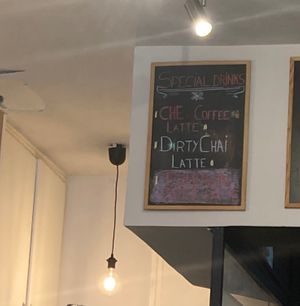 SPECIAL DRINKS
CHE COFFEE
LATTE
DIRTY CHAI
LATTE